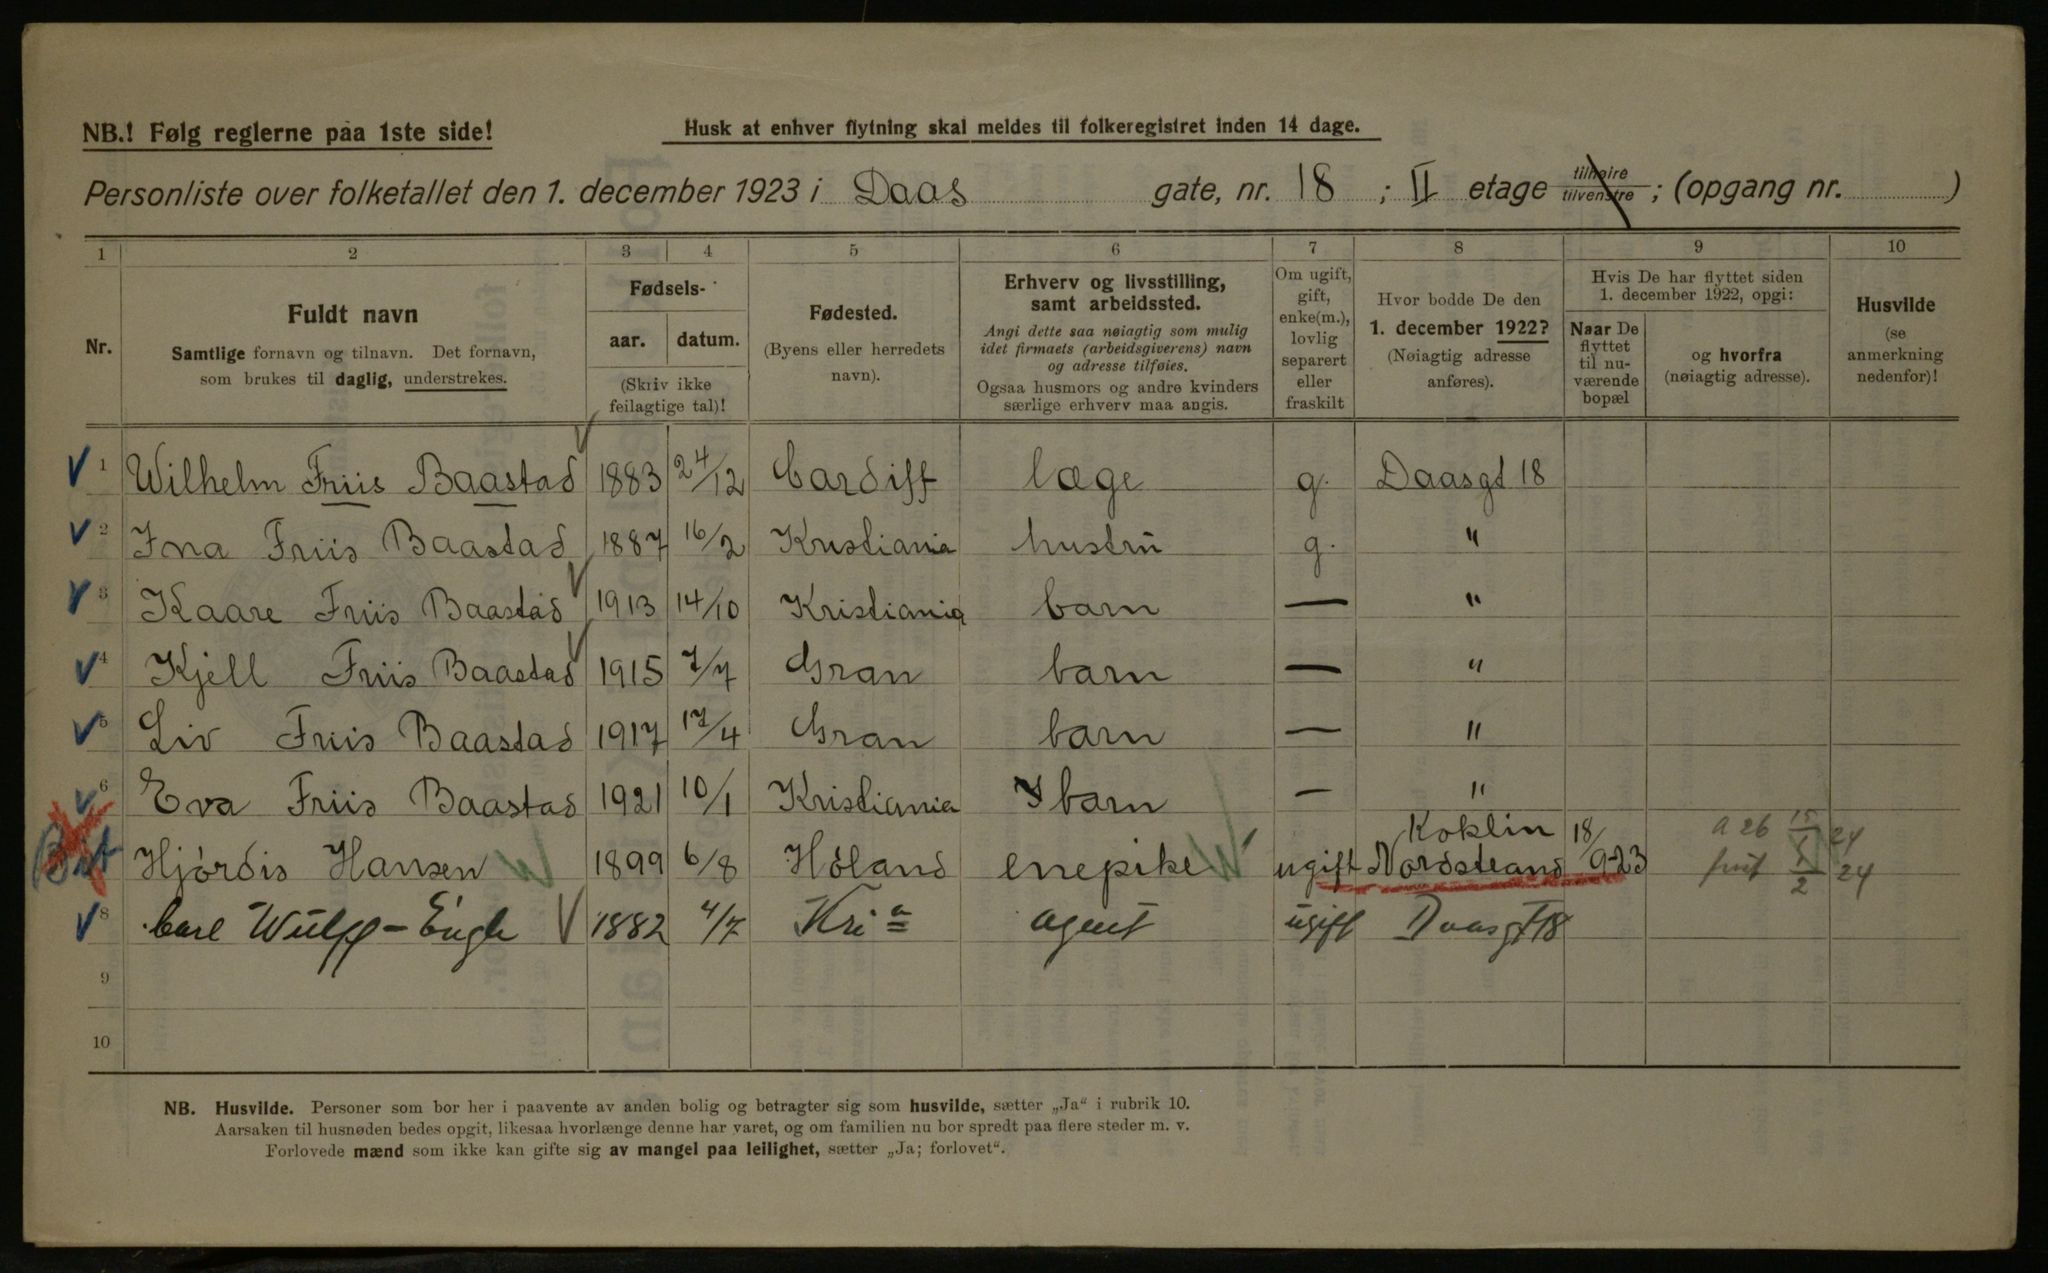 NB.! Følg reglerne paa 1ste side!
Husk at enhver flytning skal meldes til folkeregistret inden 14 dage.
Personliste over folketallet den 1. december 1923 i Daas gate, nr. 18 ; II etage tilhøire tilvenstre ; (opgang nr. )
1 2 3 4 5 6 7 8 9 10
Nr.
Fuldt navn
Samtlige fornavn og tilnavn. Det fornavn,
som brukes til daglig, understrekes.
Fødsels-
aar. datum.
(Skriv ikke
feilagtige tal)!
Fødested.
(Byens eller herredets
navn).
Erhverv og livsstilling,
samt arbeidssted.
Angi dette saa nøiagtig som mulig
idet firmaets (arbeidsgiverens) navn
og adresse tilføies.
Ogsaa husmors og andre kvinders
særlige erhverv maa angis.
Om ugift,
gift,
enke(m.),
lovlig
separert
eller
fraskilt
Hvor bodde De den
1. december 1922?
(Nøiagtig adresse
anføres).
Hvis De har flyttet siden
1. december 1922, opgi:
Naar De
flyttet
til nu-
værende
bopæl
og hvorfra
(nøiagtig adresse).
Husvilde
(se
anmerkning
nedenfor)!
1 Wilhelm Friis Baastad 1883 24/12 Cardiff læge g. Daasgt 18
2 Ina Friis Baastad 1887 16/2 Kristiania hustru g. "
3 Kaare Friis Baastad 1913 14/10 Kristiania barn — "
4 Kjell Friis Baastad 1915 7/7 Gran barn — "
5 Liv Friis Baastad 1917 17/4 Gran barn — "
6 Eva Friis Baastad 1921 10/1 Kristiania barn — "
Hjørdis Hansen 1899 6/8 Høland enepike ugift Nordstrand 18/9-23
8 Carl Wulff-Engh 1882 4/7 Kria agent ugift Daasgt 18
9
10
NB. Husvilde. Personer som bor her i paavente av anden bolig og betragter sig som husvilde, sætter „Ja“ i rubrik 10.
Aarsaken til husnøden bedes opgit, likesaa hvorlænge denne har varet, og om familien nu bor spredt paa flere steder m. v.
Forlovede mænd som ikke kan gifte sig av mangel paa leilighet, sætter „Ja; forlovet“.